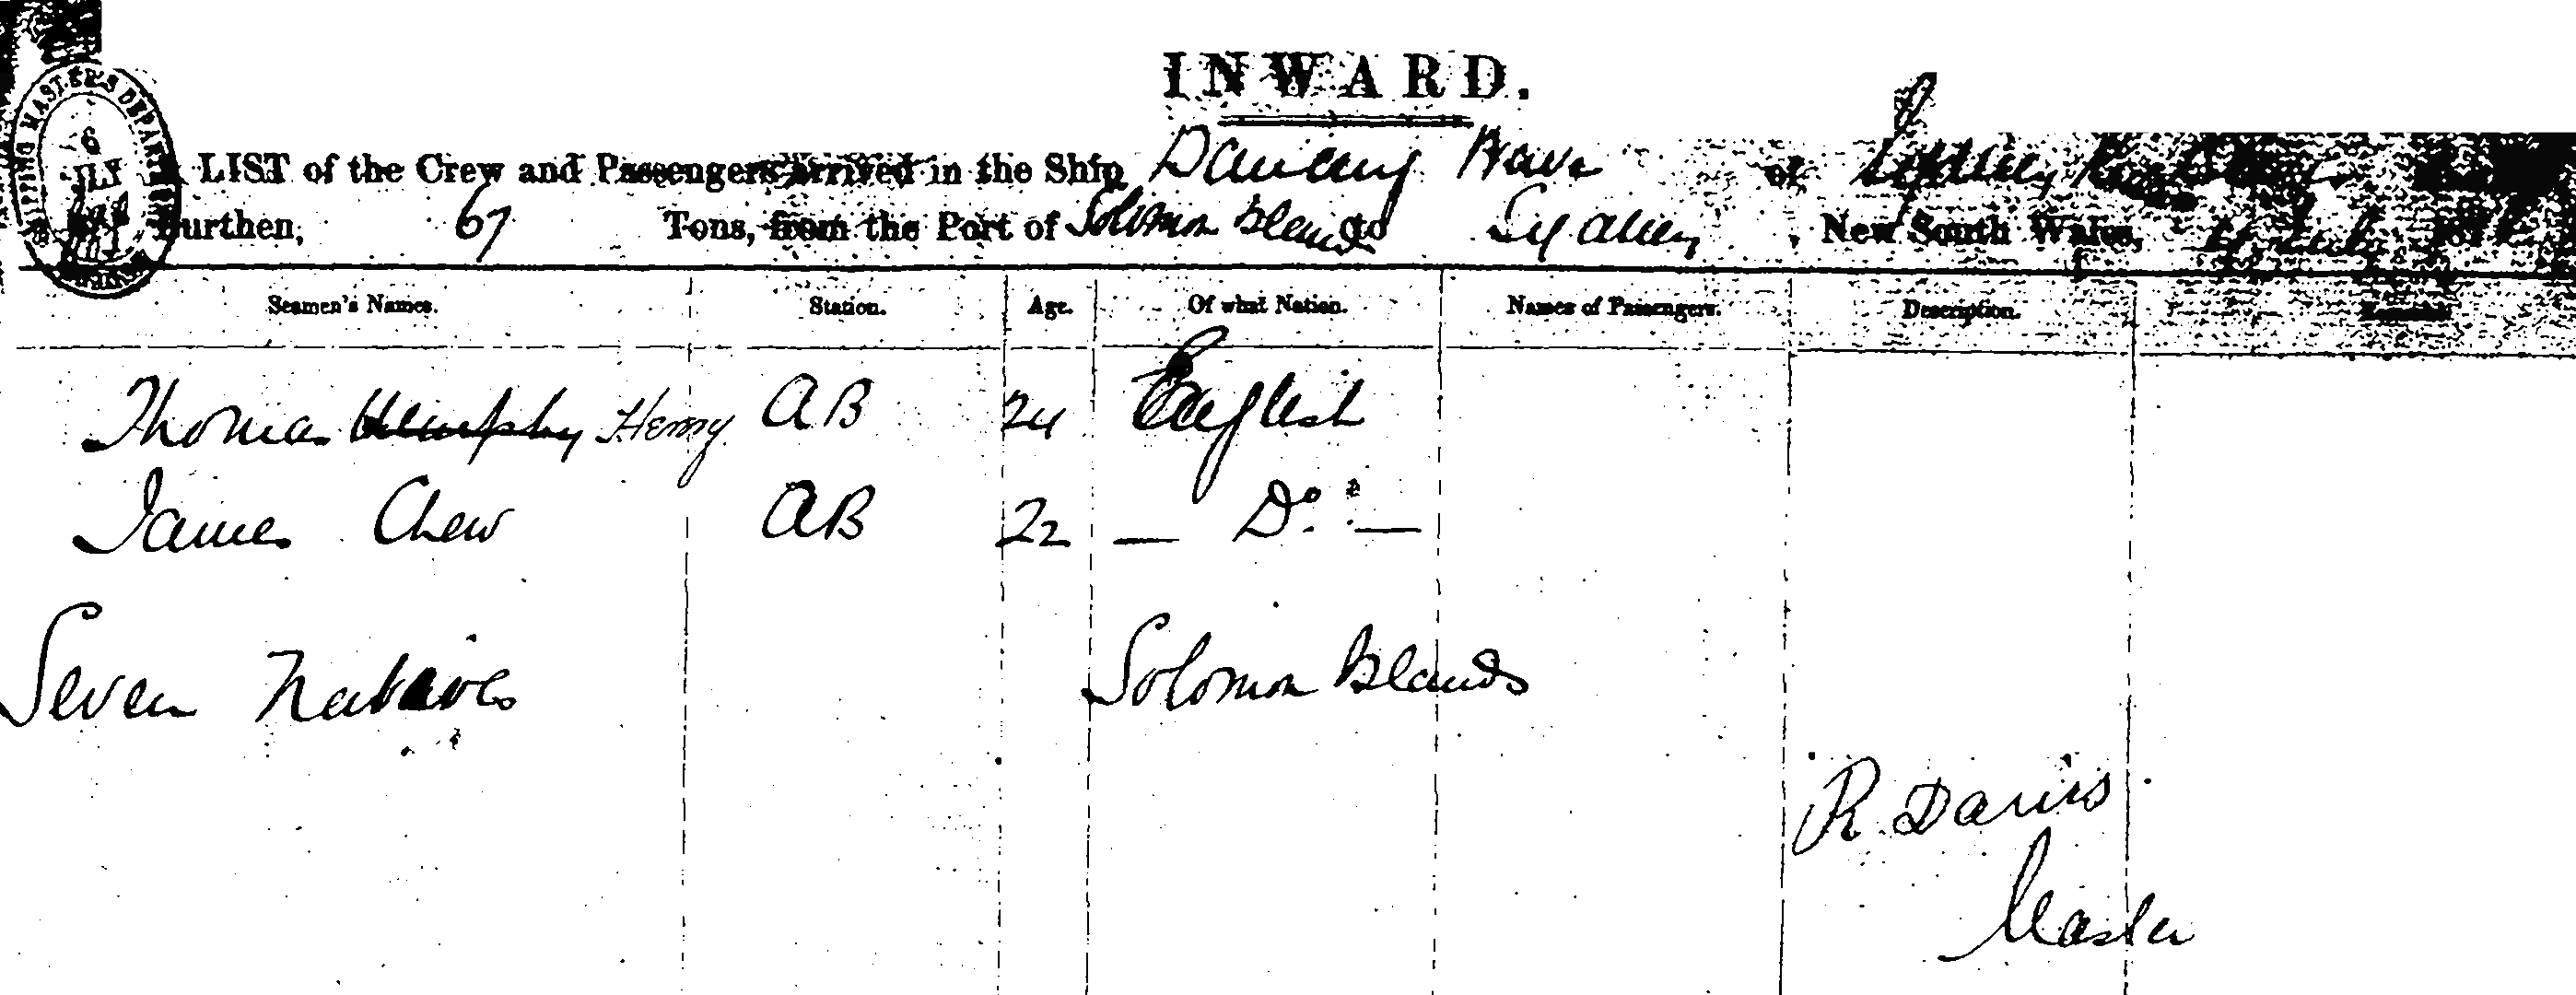 INWARD.
SHIPPING MASTER'S DEPARTMENT
6
LIST of the Crew and Passengers arrived in the Ship Dancing Wave of Sydney
Burthen, 67 Tons, from the Port of Solomon Islands to Sydney, New South Wales,
Seamen's Names. Station. Age. Of what Nation. Names of Passengers. Description. Remarks.
Thomas Henry AB 24 English
James Chew AB 22 — Do. —
Seven Natives Solomon Islands
R. Davis
Master